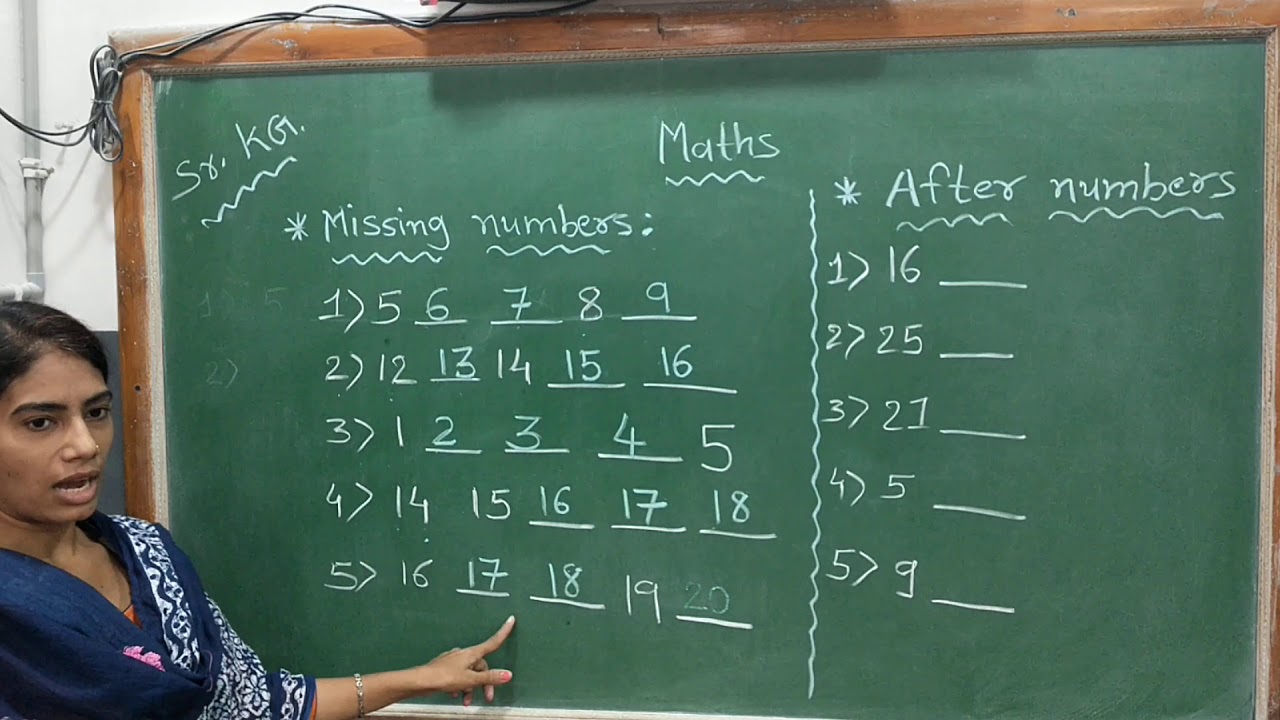 Sr. KG.
Maths
* Missing numbers:
1) 5 6 7 8 9
2) 12 13 14 15 16
3) 1 2 3 4 5
4) 14 15 16 17 18
5) 16 17 18 19 20
* After numbers
1) 16 ___
2) 25 ___
3) 21 ___
4) 5 ___
5) 9 ___
1) 5
2)